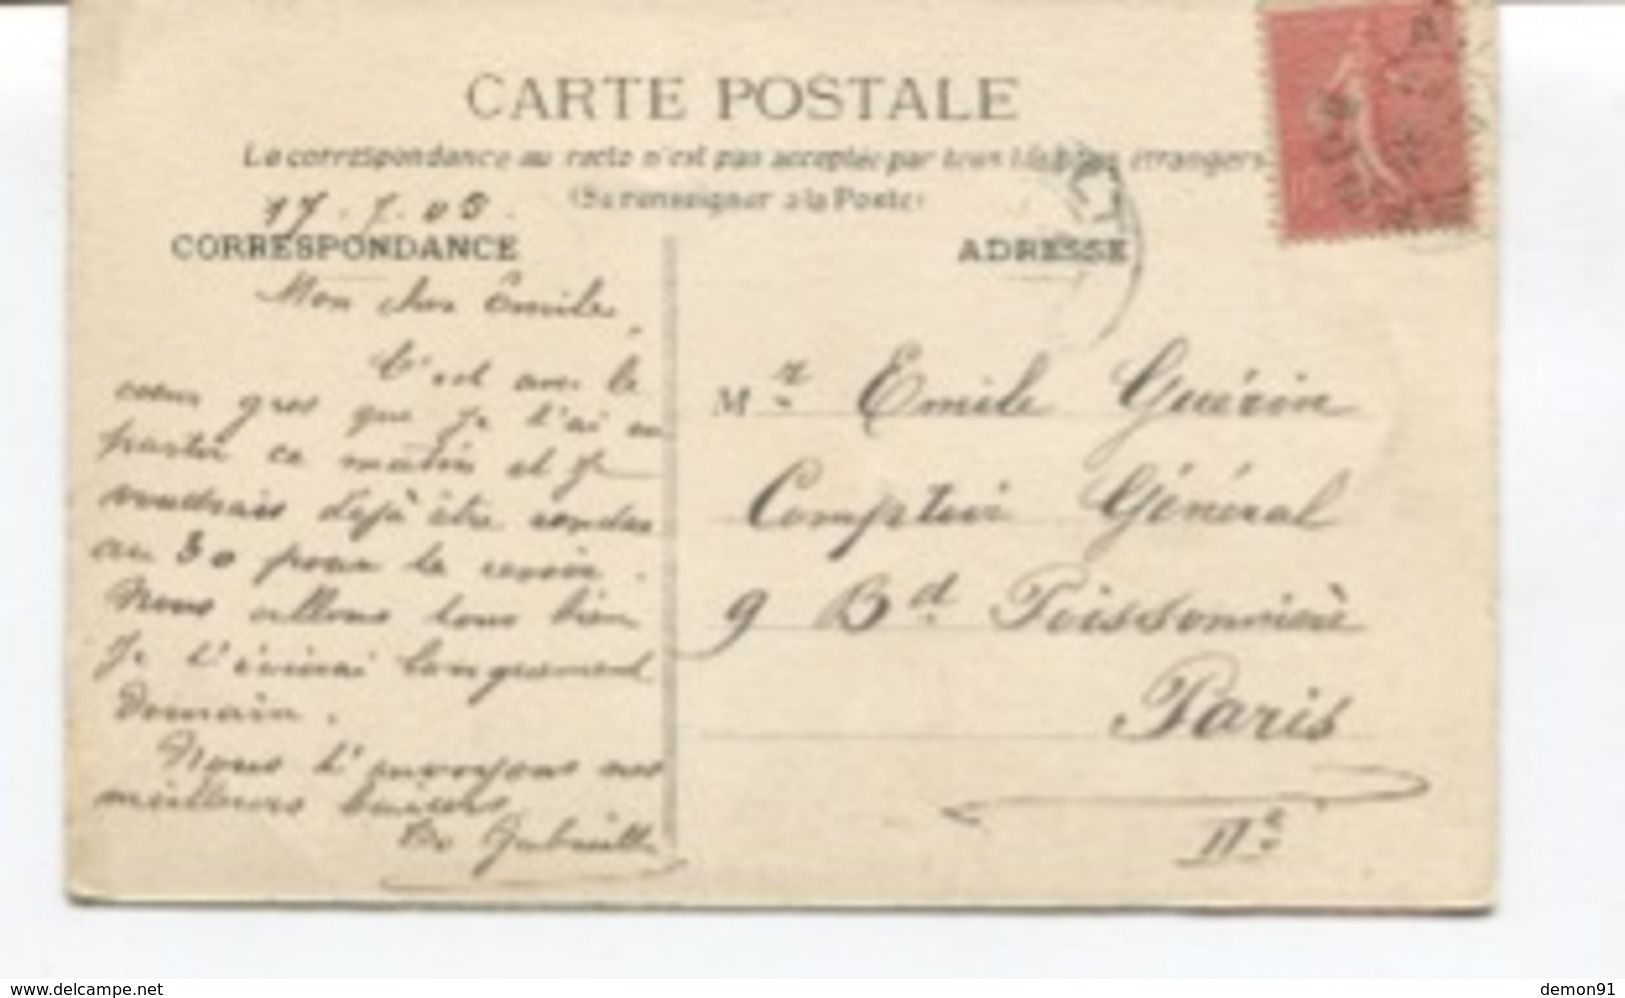 CARTE POSTALE
La correspondance au recto n'est pas acceptée par tous étrangers
(Se renseigner à la Poste)
17.7.05.
CORRESPONDANCE
Mon cher Émile,
C'est avec le
coeur gros que je t'ai vu
partir ce matin et je
voudrais déjà être rendue
au 30 pour te revoir.
Nous allons tous bien
Je t'écrirai longuement
Demain.
Nous t'envoyons nos
meilleurs baisers
Gabrielle
ADRESSE
Mr Emile Guérin
Comptoir Général
9 Bd Poissonnière
Paris
IIe
www.delcampe.net
demon91